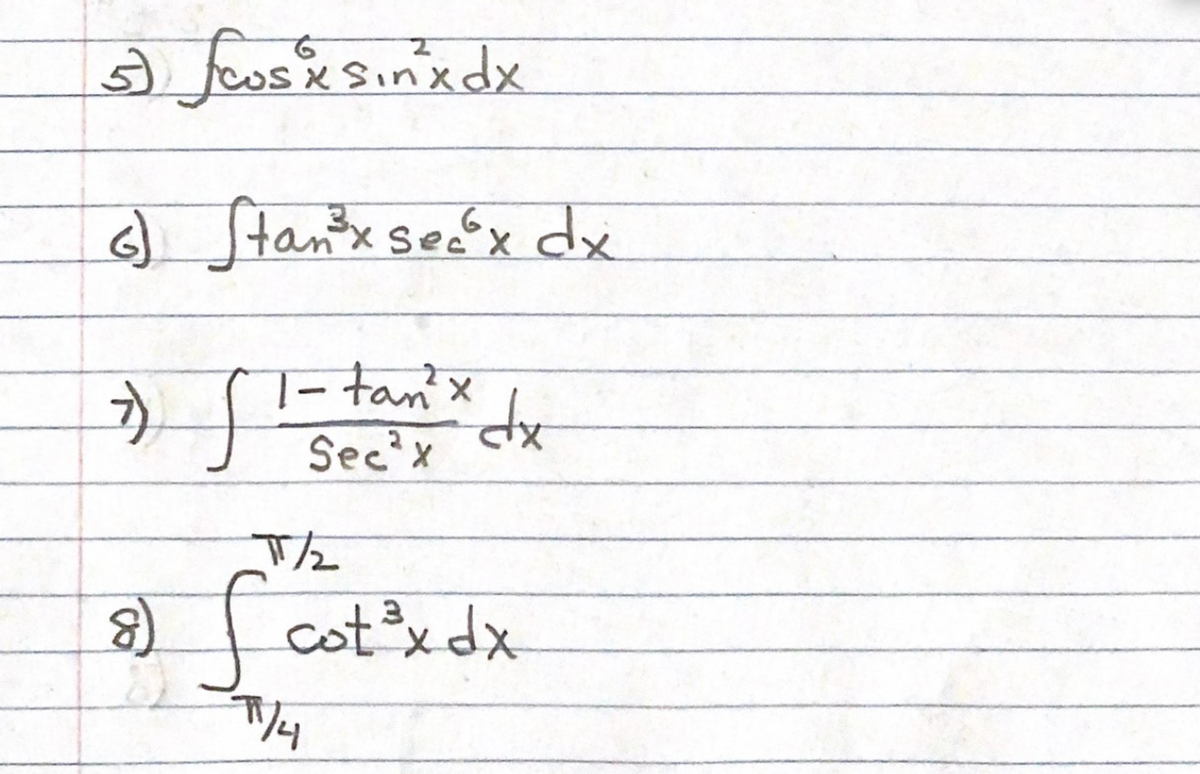 5) ∫cos⁶x sin²x dx
6) ∫tan³x sec⁶x dx
7) ∫ (1 - tan²x)/(Sec²x) dx
8) ∫_{π/4}^{π/2} cot³x dx